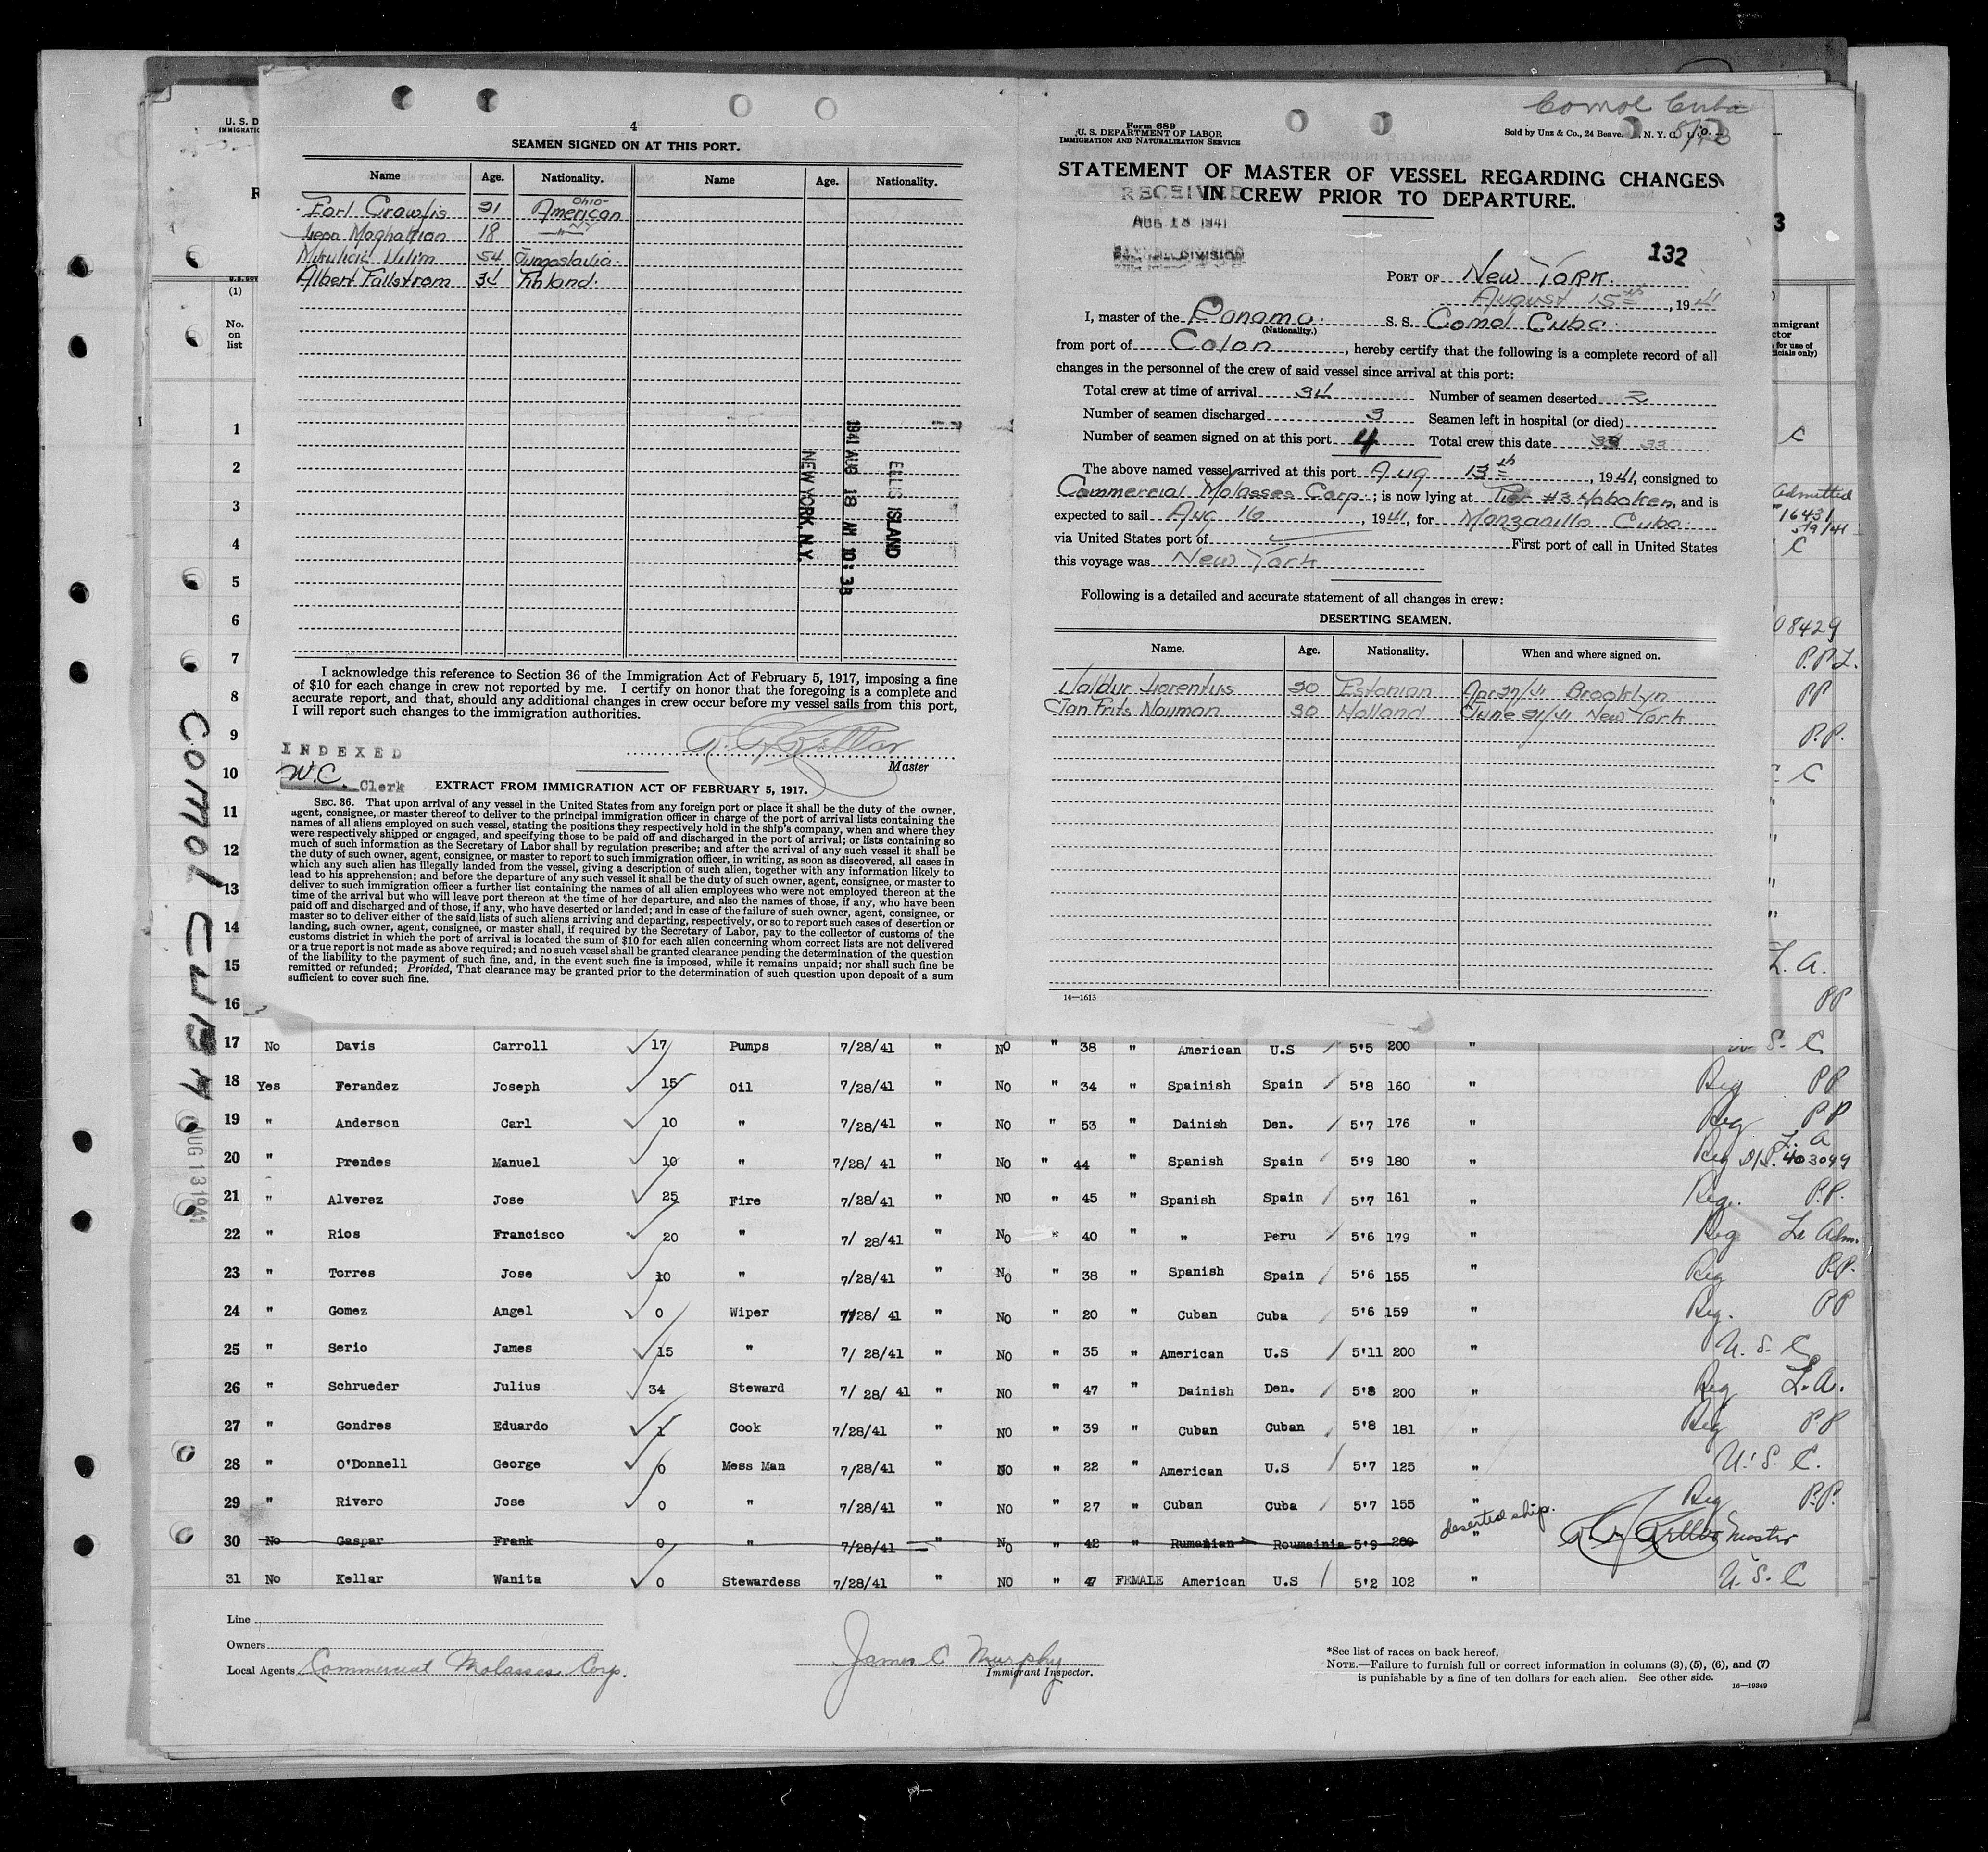 4
SEAMEN SIGNED ON AT THIS PORT.
Name Age. Nationality. Name Age. Nationality.
Earl Crawfis 21 American Ohio-
Leon Maghakian 18 " NY
Mikulicic Vilim 54 Jugoslavia.
Albert Fallstrom 34 Finland.
1941 AUG 18 AM 10:38
ELLIS ISLAND
NEW YORK, N.Y.
I acknowledge this reference to Section 36 of the Immigration Act of February 5, 1917, imposing a fine
of $10 for each change in crew not reported by me. I certify on honor that the foregoing is a complete and
accurate report, and that, should any additional changes in crew occur before my vessel sails from this port,
I will report such changes to the immigration authorities.
Master
INDEXED
W.C. Clerk
EXTRACT FROM IMMIGRATION ACT OF FEBRUARY 5, 1917.
SEC. 36. That upon arrival of any vessel in the United States from any foreign port or place it shall be the duty of the owner,
agent, consignee, or master thereof to deliver to the principal immigration officer in charge of the port of arrival lists containing the
names of all aliens employed on such vessel, stating the positions they respectively hold in the ship's company, when and where they
were respectively shipped or engaged, and specifying those to be paid off and discharged in the port of arrival; or lists containing so
much of such information as the Secretary of Labor shall by regulation prescribe; and after the arrival of any such vessel it shall be
the duty of such owner, agent, consignee, or master to report to such immigration officer, in writing, as soon as discovered, all cases in
which any such alien has illegally landed from the vessel, giving a description of such alien, together with any information likely to
lead to his apprehension; and before the departure of any such vessel it shall be the duty of such owner, agent, consignee, or master to
deliver to such immigration officer a further list containing the names of all alien employees who were not employed thereon at the
time of the arrival but who will leave port thereon at the time of her departure, and also the names of those, if any, who have been
paid off and discharged and of those, if any, who have deserted or landed; and in case of the failure of such owner, agent, consignee, or
master so to deliver either of the said lists of such aliens arriving and departing, respectively, or so to report such cases of desertion or
landing, such owner, agent, consignee, or master shall, if required by the Secretary of Labor, pay to the collector of customs of the
customs district in which the port of arrival is located the sum of $10 for each alien concerning whom correct lists are not delivered
or a true report is not made as above required; and no such vessel shall be granted clearance pending the determination of the question
of the liability to the payment of such fine, and, in the event such fine is imposed, while it remains unpaid; nor shall such fine be
remitted or refunded; Provided, That clearance may be granted prior to the determination of such question upon deposit of a sum
sufficient to cover such fine.
Comol Cuba
Form 689
U. S. DEPARTMENT OF LABOR
IMMIGRATION AND NATURALIZATION SERVICE
Sold by Unz & Co., 24 Beave. , N. Y. C.
STATEMENT OF MASTER OF VESSEL REGARDING CHANGES
IN CREW PRIOR TO DEPARTURE.
RECEIVED
AUG 18 1941
DIVISION
132
PORT OF New York
August 15th, 1941
I, master of the Panama. S. S. Comol Cuba.
(Nationality.)
from port of Colon, hereby certify that the following is a complete record of all
changes in the personnel of the crew of said vessel since arrival at this port:
Total crew at time of arrival 34 Number of seamen deserted 2
Number of seamen discharged 3 Seamen left in hospital (or died)
Number of seamen signed on at this port 4 Total crew this date 33
The above named vessel arrived at this port Aug 13th, 1941, consigned to
Commercial Molasses Corp.; is now lying at Pier #3 Hoboken, and is
expected to sail Aug 16, 1941, for Manzanillo Cuba.
via United States port of First port of call in United States
this voyage was New York
Following is a detailed and accurate statement of all changes in crew:
DESERTING SEAMEN.
Name. Age. Nationality. When and where signed on.
Valdur Lorentus 20 Estonian Apr 27/41 Brooklyn
Jan Frits Nouman 30 Holland June 21/41 New York
14—1613
U. S. D
IMMIGRATI
(1)
No.
on
list
3
mmigrant
ctor
for use of
ficials only)
1 C
2
3 Admitted
16431
5/9/41
4 C
5
6 08429
7 P.P.L.
8 PP
9 P.P.
10 C
11 "
12 "
13 "
14 "
15 L. A.
16 PP
Comol CUBA
AUG 13 1941
17 No Davis Carroll 17 Pumps 7/28/41 " NO " 38 " American U.S 5'5 200 " S. C
18 Yes Ferandez Joseph 15 Oil 7/28/41 " NO " 34 " Spainish Spain 5'8 160 " Reg PP
19 " Anderson Carl 10 " 7/28/41 " NO " 53 " Dainish Den. 5'7 176 " Reg PP
20 " Prendes Manuel 10 " 7/28/ 41 " NO " 44 " Spanish Spain 5'9 180 " Reg L. A 403049
21 " Alverez Jose 25 Fire 7/28/41 " NO " 45 " Spanish Spain 5'7 161 " Reg. P.P.
22 " Rios Francisco 20 " 7/ 28/41 " NO " 40 " " Peru 5'6 179 " Reg La Adm.
23 " Torres Jose 10 " 7/28/41 " NO " 38 " Spanish Spain 5'6 155 " Reg P.P.
24 " Gomez Angel 0 Wiper 7/28/ 41 " NO " 20 " Cuban Cuba 5'6 159 " Reg. PP
25 " Serio James 15 " 7/ 28/41 " NO " 35 " American U.S 5'11 200 " U. S. C
26 " Schrueder Julius 34 Steward 7/ 28/ 41 " NO " 47 " Dainish Den. 5'8 200 " Reg L.A.
27 " Gondres Eduardo 1 Cook 7/28/41 " NO " 39 " Cuban Cuban 5'8 181 " Reg PP
28 " O'Donnell George 0 Mess Man 7/28/41 " NO " 22 " American U.S 5'7 125 " U. S. C.
29 " Rivero Jose 0 " 7/28/41 " NO " 27 " Cuban Cuba 5'7 155 " Reg P.P.
30 No Gaspar Frank 0 " 7/28/41 " NO " 42 " Rumanian Roumainia 5'9 200 " deserted ship. Master
31 No Kellar Wanita 0 Stewardess 7/28/41 " NO " 47 FEMALE American U.S 5'2 102 " U. S. C
Line
Owners
Local Agents Commercial Molasses Corp.
James C Murphy
Immigrant Inspector.
*See list of races on back hereof.
NOTE.—Failure to furnish full or correct information in columns (3), (5), (6), and (7)
is punishable by a fine of ten dollars for each alien. See other side.
16—19349